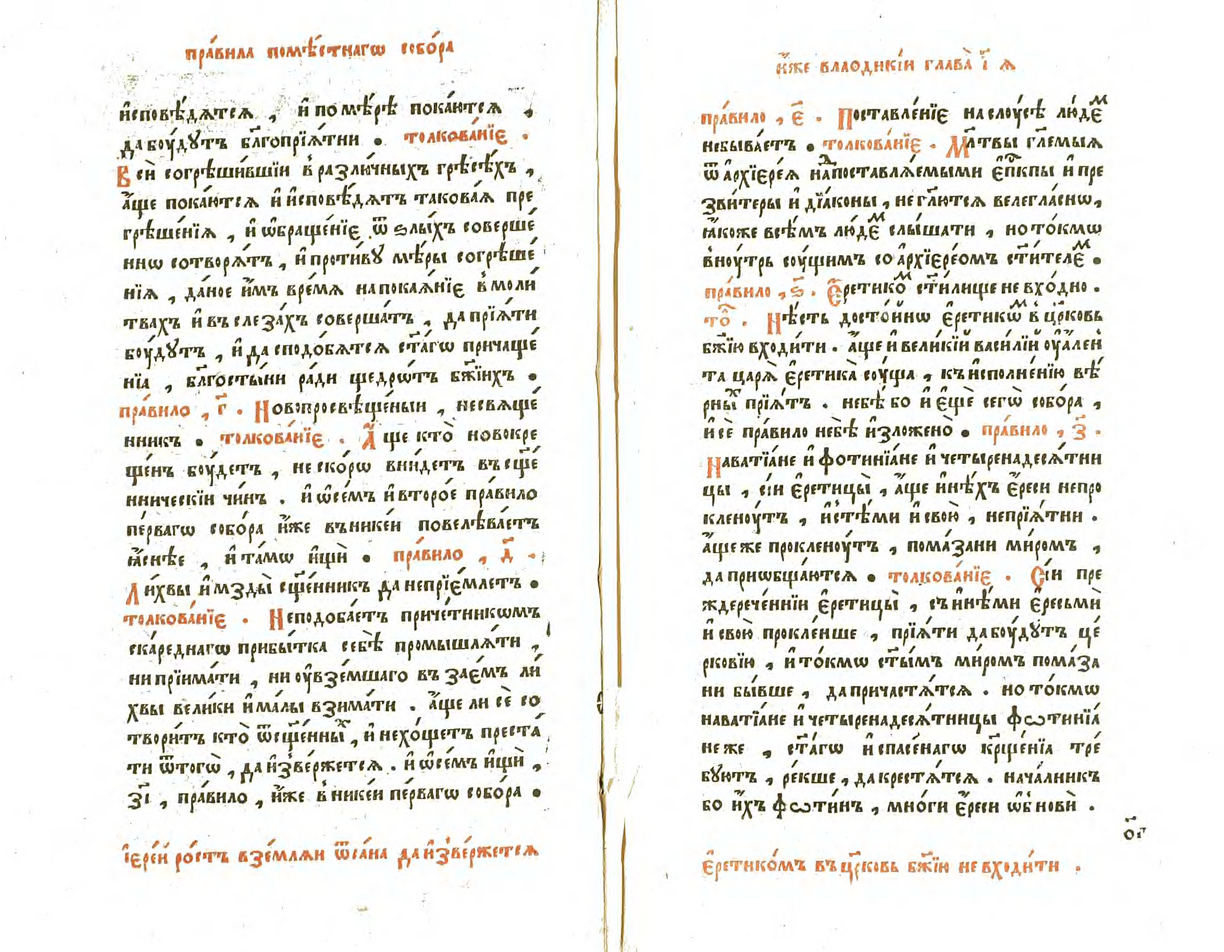 пра́вила помѣ́стнагѡ собо́ра
и҆сповѣ́дѧтсѧ , и҆ по мѣ́рѣ пока́ютсѧ ,
да бꙋ́дꙋтъ бл҃гопрїѧ́тни . толкова́нїе .
Всѝ согрѣши́вшїи в҆ разли́чныхъ грѣсѣ́хъ ,
а҆́ще пока́ютсѧ и҆ и҆сповѣ́дѧтъ такова́ѧ пре
грѣше́нїѧ , и҆ ѡ҆браще́нїе ѿ ѕлы́хъ соверше́
ннѡ сотворѧ́тъ , и҆ противꙋ̀ мѣ́ры согрѣше́
нїѧ , да́ное и҆̀мъ вре́мѧ на покаѧ́нїе в҆ моли́
твахъ и҆ въ слеза́хъ соверша́тъ , да прїѧ́ти
боу́дꙋтъ , и҆ да сподо́бѧтсѧ ст҃а́гѡ причаще́
нїа , бл҃госты́ни ра́ди щедро́тъ бж҃їихъ .
пра́вило , г҃ . Новопросвѣще́ныи , несвѧще́
нникъ . толкова́нїе . А҆́ще кто̀ новокре
ще́нъ боу́детъ , не ско́рѡ вни́детъ въ сщ҃е́
нническїи чи́нъ . и҆ ѡ҆ се́мъ и҆ второ́е пра́вило
пе́рвагѡ собо́ра и҆́же въ нике́и повелѣва́етъ
ꙗ҆́снѣе , и҆ та́мѡ и҆щѝ . пра́вило , д҃ .
Ли́хвы и҆ мзды̀ сщ҃е́нникъ да непрїе́млетъ .
толкова́нїе . Неподоба́етъ приче́тникѡмъ
ска́реднагѡ прибы́тка себѣ̀ промышлѧ́ти ,
ни прїима́ти , ни оу҆ взе́мшаго въ зае́мъ ли́
хвы вели́ки и҆ ма́лы взима́ти . а҆́ще ли сѐ со
твори́тъ кто̀ ѿ сщ҃е́нны́хъ , и҆ нехо́щетъ преста́
ти ѿ тогѡ̀ , да и҆зве́ржетсѧ . и҆ ѡ҆ се́мъ и҆щѝ ,
з҃і , пра́вило , и҆́же в҆ нике́и пе́рвагѡ собо́ра .
і҆ере́й ро́стъ взе́млѧи ѿ са́на да и҆зве́ржетсѧ
и҆́же в лаодикі́и глава̀ і҃ ѧ
пра́вило , е҃ . Поставле́нїе на слоу́сѣ люде́м
небыва́етъ . толкова́нїе . Мл҃твы гл҃емыѧ
ѿ а҆рхїере́ѧ надпоставлѧ́емыми е҆пⷭ҇кпы и҆ пре
зви́теры и҆ дїа́коны , не гл҃ютсѧ велегла́снѡ ,
ꙗ҆́коже всѣ́мъ люде́м слы́шати , но то́кмѡ
в҆ноу́трь соу́щимъ со а҆рхїере́омъ ст҃и́теле́м .
пра́вило , ѕ҃ . Е҆рети́ком ст҃и́лище не вхо́дно .
то҃ . Нѣ́сть досто́йнѡ е҆рети́кѡм в҆ цр҃ковь
бж҃їю входи́ти . а҆́ще и҆ вели́кїй васи́лїй оу҆але́н
та царѧ̀ е҆рети́ка соу́ща , къ и҆сполне́нїю вѣ́
рны́х прїѧ́тъ . не бѣ̀ бо и҆ е҆щѐ сегѡ̀ собо́ра ,
и҆ сѐ пра́вило небѣ̀ и҆зложено̀ . пра́вило , з҃ .
Навати́ане и҆ фотинїа́не и҆ четыренадесѧ́тни
цы , сїѝ е҆ретицы̀ , а҆́ще и҆нѣ́хъ е҆́реси непро
кленоу́тъ , и҆ с тѣ́ми и҆ свою̀ , непрїѧ́тни .
а҆́ще же прокленоу́тъ , пома́зани ми́ромъ ,
да приѡбща́ютсѧ . толкова́нїе . Сїѝ пре
ждерече́ннїи е҆ретицы̀ , съ и҆нѣ́ми е҆ресьмѝ
и҆ свою̀ прокле́нше , прїѧ́ти да боу́дꙋтъ це́
рковїю , и҆ то́кмѡ ст҃ы́мъ ми́ромъ пома́за
ни бы́вше , да причастѧ́тсѧ . но то́кмѡ
навати́ане и҆ четыренадесѧ́тницы фѡтинїа́
не же , ст҃а́гѡ и҆ спасе́нагѡ крⷭ҇ще́нїа тре́
бꙋютъ , ре́кше , да крестѧ́тсѧ . нача́лникъ
бо и҆́хъ фѡти́нъ , мно́ги е҆́реси ѡ҆бновѝ .
ог҃
е҆ретико́мъ въ цр҃ковь бж҃їю не входи́ти .